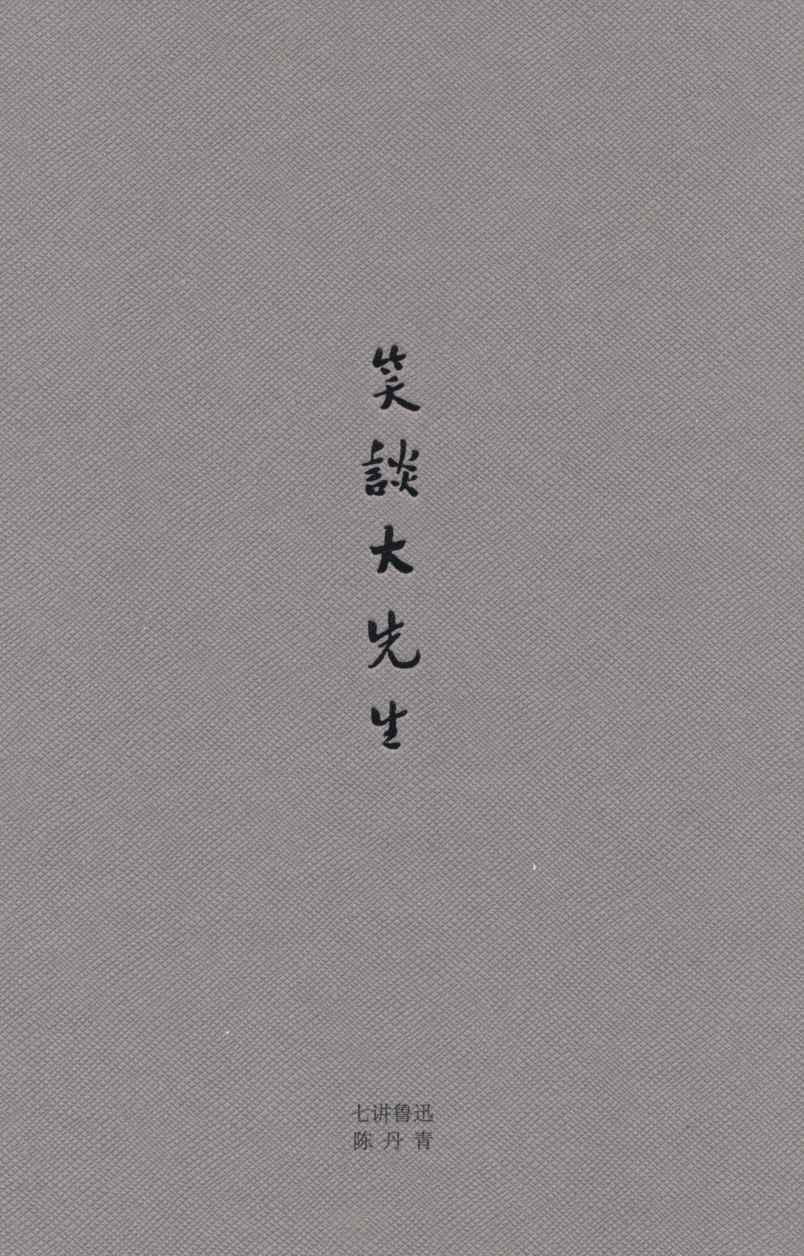 笑談大先生
七讲鲁迅
陈丹青